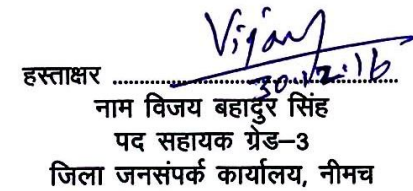 Vijay
हस्ताक्षर ........................................
30.12.16
नाम विजय बहादुर सिंह
पद सहायक ग्रेड–3
जिला जनसंपर्क कार्यालय, नीमच